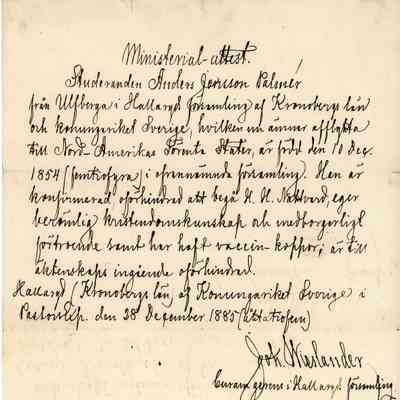 Ministerial-attest.
Studeranden Anders Jonsson Palmér
från Ulfberga i Hallaryds församling af Kronobergs län
och konungariket Sverige, hvilken nu ämnar afflytta
till Nord-Amerikas Förenta Stater, är född den 10 Dec.
1854 (femtiofyra) i ofvannämnda församling. Han är
konfirmerad oförhindrad att begå H. H. Nattvard, eger
berömlig kristendomskunskap och medborgerligt
förtroende samt har haft vaccin-koppor; är till
äktenskaps ingående oförhindrad.
Hallaryd (Kronobergs län, af Konungariket Sverige i
Pastorsexp. den 28 December 1885 (åttatiofem)
Joh. Wieslander
Curam gerens i Hallaryds församling